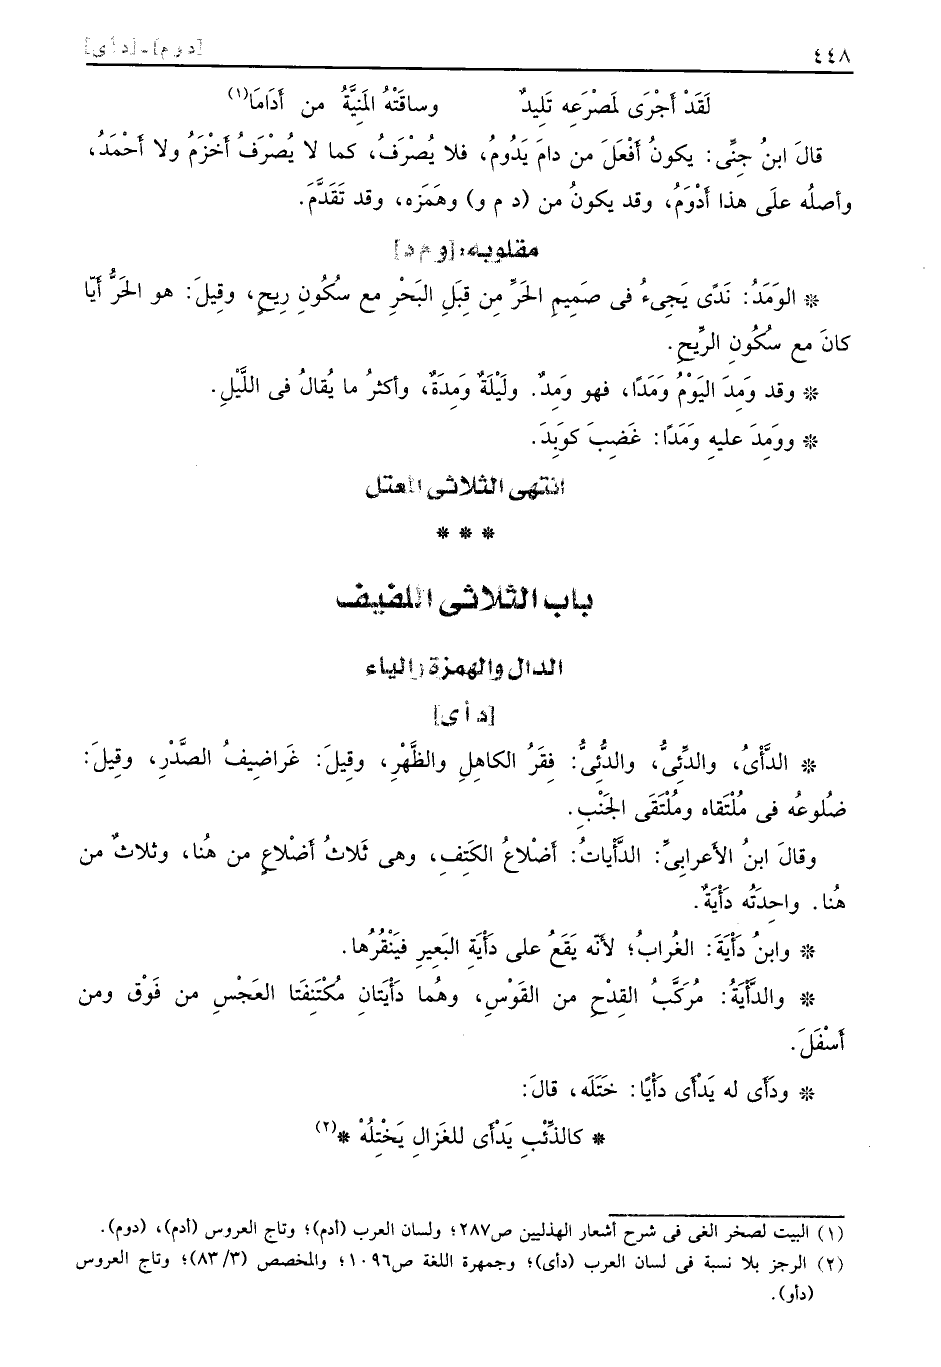 ٤٤٨ [دوم] - [دأى]
لَقَدْ أَجْرَى لمَصْرَعِه تَلِيدٌ وساقَتْهُ المَنِيَّةُ من أَدَامَا(١)
قالَ ابنُ جِنِّى: يكونُ أَفْعَلَ من دامَ يَدُومُ، فلا يُصْرَفُ، كما لا يُصْرَفُ أخْزَمُ ولا أحْمَدُ،
وأصلُه علَى هذا أَدْوَمُ، وقد يكونُ من (د م و) وهَمَزه، وقد تَقَدَّمَ.
مقلوبه: [و م د]
* الوَمَدُ: نَدًى يَجِىءُ فى صَمِيمِ الحَرِّ من قِبَلِ البَحْرِ مع سُكُونِ رِيحٍ، وقِيلَ: هو الحَرُّ أيّا
كانَ مع سُكُونِ الرِّيحِ.
* وقد وَمِدَ اليَوْمُ وَمَدًا، فهو وَمِدٌ. ولَيْلَةٌ وَمِدَةٌ، وأكثرُ ما يُقالُ فى اللَّيْلِ.
* ووَمِدَ عليه وَمَدًا: غَضِبَ كوَبِدَ.
انتهى الثلاثى المعتل
* * *
باب الثلاثى اللفيف
الدال والهمزة والياء
[د أ ى]
* الدَّأْىُ، والدِّئِىُّ، والدُّئِىُّ: فِقَرُ الكاهِلِ والظَّهْرِ، وقِيلَ: غَراضِيفُ الصَّدْرِ، وقِيلَ:
ضُلوعُه فى مُلْتَقاه ومُلْتَقَى الجَنْبِ.
وقالَ ابنُ الأعرابِىِّ: الدَّأَياتُ: أضْلاعُ الكَتِفِ، وهى ثَلاثُ أضْلاعٍ من هُنا، وثلاثٌ من
هُنا. واحِدَتُه دَأْيَةٌ.
* وابنُ دَأْيَةَ: الغُرابُ؛ لأنّه يَقَعُ على دَأْيَةِ البَعِيرِ فيَنْقُرُها.
* والدَّأْيَةُ: مُرَكَّبُ القِدْحِ من القَوْسِ، وهُما دَأْيَتانِ مُكْتَنِفَتا العَجْسِ من فَوْق ومن
أسْفَلَ.
* ودَأَى له يَدْأَى دَأْيًا: خَتَلَه، قالَ:
* كالذِّئْبِ يَدْأَى للغَزالِ يَخْتِلُهْ *(٢)
(١) البيت لصخر الغى فى شرح أشعار الهذليين ص٢٨٧؛ ولسان العرب (أدم)؛ وتاج العروس (أدم)، (دوم).
(٢) الرجز بلا نسبة فى لسان العرب (دأى)؛ وجمهرة اللغة ص١٠٩٦؛ والمخصص (٣/ ٨٣)؛ وتاج العروس
(دأو).